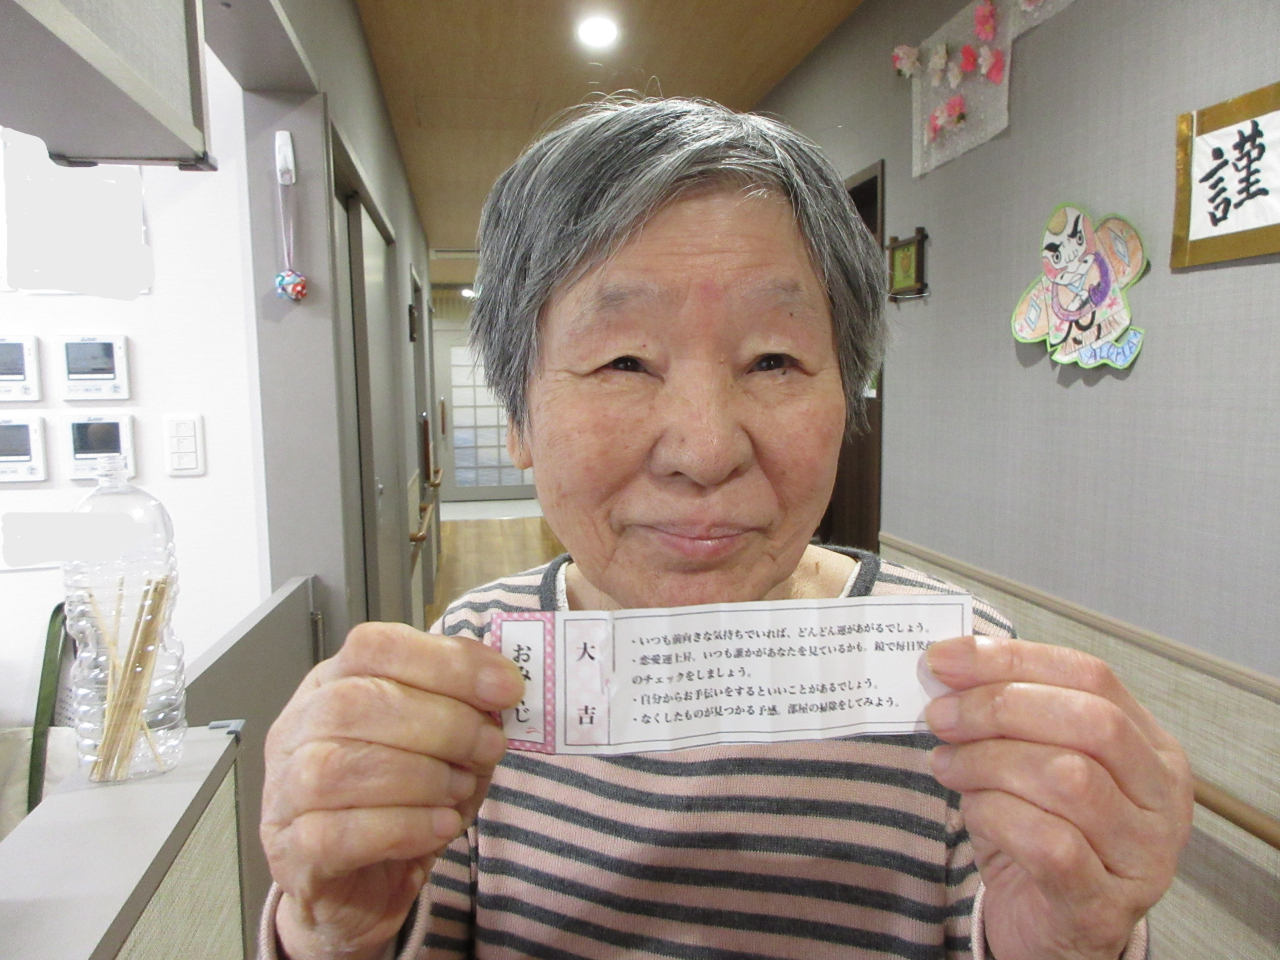 謹
ALOHA
おみ
じ
二
大吉
・いつも前向きな気持ちでいれば、どんどん運があがるでしょう。
・恋愛運上昇。いつも誰かがあなたを見ているかも。鏡で毎日笑
のチェックをしましょう。
・自分からお手伝いをするといいことがあるでしょう。
・なくしたものが見つかる予感。部屋の掃除をしてみよう。